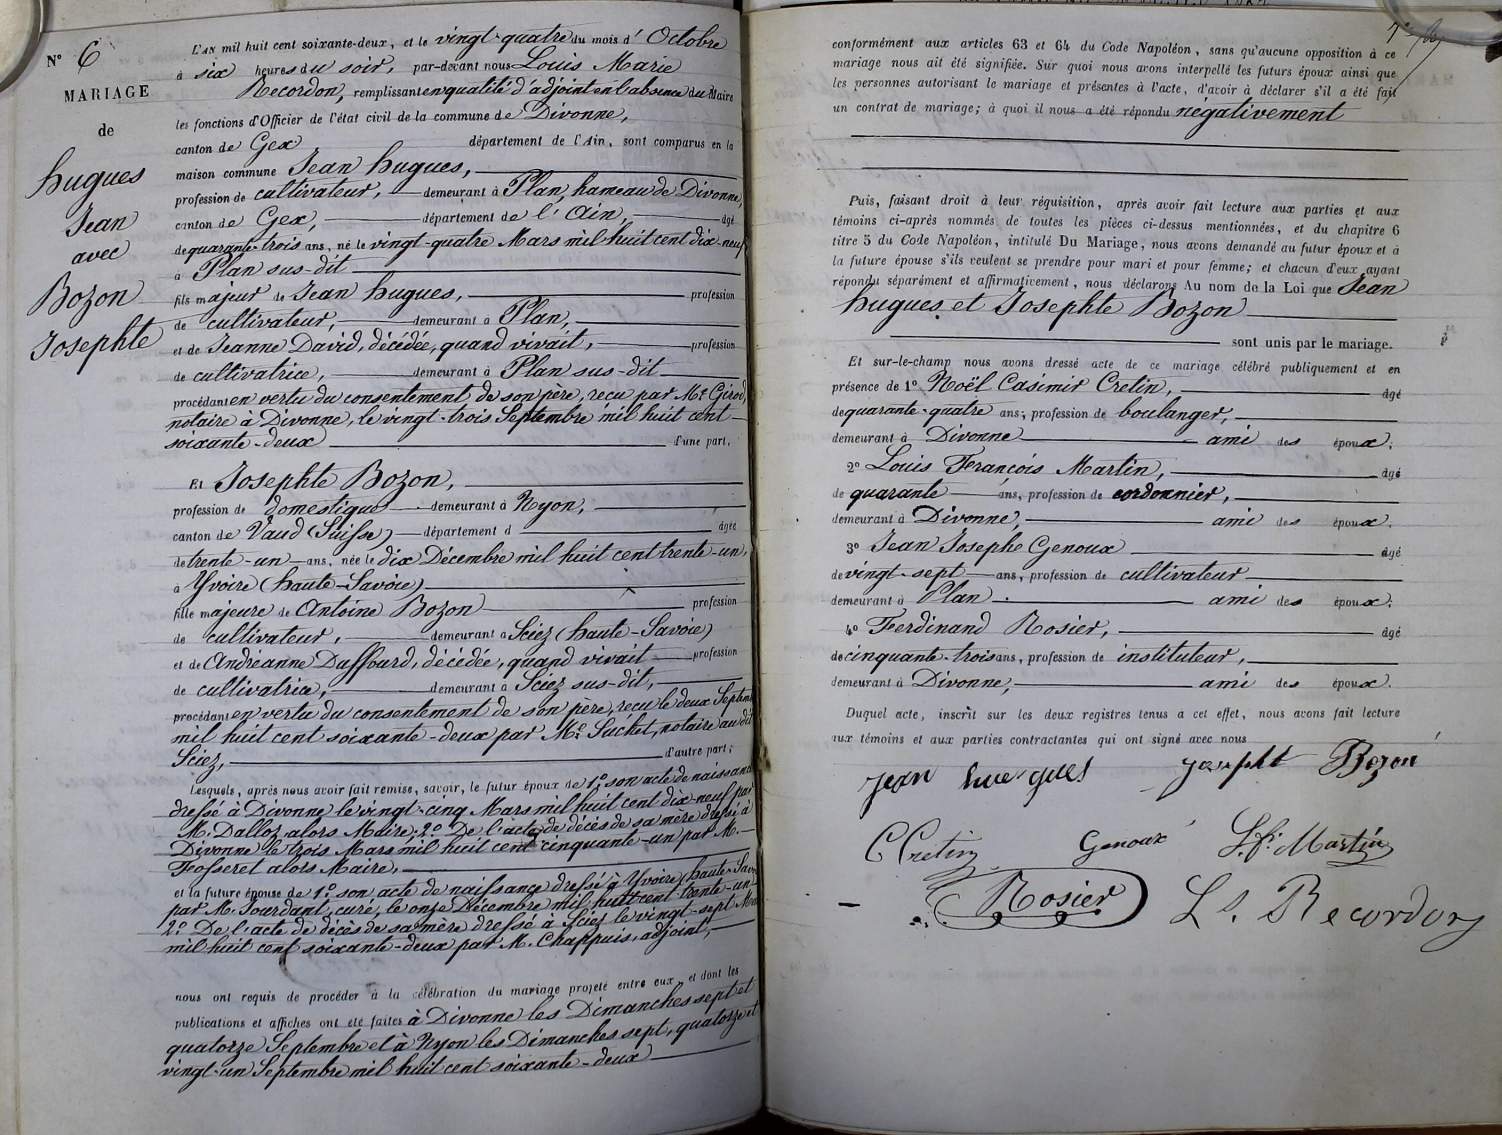 N° 6
MARIAGE
de
Hugues
Jean
avec
Bozon
Josephte
L'AN mil huit cent soixante-deux, et le vingt-quatre du mois d'Octobre
à six heures du soir, par-devant nous Louis Marie
Recordon, remplissant en qualité d'adjoint en l'absence du Maire
les fonctions d'Officier de l'état civil de la commune de Divonne,
canton de Gex département de l'Ain, sont comparus en la
maison commune Jean Hugues,
profession de cultivateur, demeurant à Plan, hameau de Divonne,
canton de Gex, département de l'Ain, âgé
de quarante-trois ans, né le vingt-quatre Mars mil huit cent dix-neuf
à Plan sus-dit
fils majeur de Jean Hugues, profession
de cultivateur, demeurant à Plan,
et de Jeanne David, décédée, quand vivait, profession
de cultivatrice, demeurant à Plan sus-dit
procédant en vertu du consentement de son père, reçu par Me Girod,
notaire à Divonne, le vingt-trois Septembre mil huit cent
soixante-deux d'une part,
Et Josephte Bozon,
profession de domestique demeurant à Nyon,
canton de Vaud (Suisse) département d âgée
de trente-un ans, née le dix Décembre mil huit cent trente-un,
à Yvoire (haute-Savoie)
fille majeure de Antoine Bozon profession
de cultivateur, demeurant à Sciez (haute-Savoie)
et de Andréanne Duffourd, décédée, quand vivait profession
de cultivatrice, demeurant à Sciez sus-dit,
procédant en vertu du consentement de son père, reçu le deux Septem
mil huit cent soixante-deux par Me Suchet, notaire au dit
Sciez, d'autre part;
Lesquels, après nous avoir fait remise, savoir, le futur époux de 1° son acte de naissance
dressé à Divonne le vingt-cinq Mars mil huit cent dix-neuf par
M. Dalloz, alors Maire; 2° De l'acte de décès de sa mère dressé à
Divonne le trois Mars mil huit cent cinquante-un par M.
Fosseret alors Maire,
et la future épouse de 1° son acte de naissance dressé à Yvoire (haute-Savoie
par M. Jourdant, curé, le onze Décembre mil huit cent trente-un
2° De l'acte de décès de sa mère dressé à Sciez le vingt-sept Mai
mil huit cent soixante-deux par M. Chappuis, adjoint,
nous ont requis de procéder à la célébration du mariage projeté entre eux, et dont les
publications et affiches ont été faites à Divonne les Dimanches sept et
quatorze Septembre et à Nyon les Dimanches sept, quatorze et
vingt-un Septembre mil huit cent soixante-deux
conformément aux articles 63 et 64 du Code Napoléon, sans qu'aucune opposition à ce
mariage nous ait été signifiée. Sur quoi nous avons interpellé les futurs époux ainsi que
les personnes autorisant le mariage et présentes à l'acte, d'avoir à déclarer s'il a été fait
un contrat de mariage; à quoi il nous a été répondu négativement
Puis, faisant droit à leur réquisition, après avoir fait lecture aux parties et aux
témoins ci-après nommés de toutes les pièces ci-dessus mentionnées, et du chapitre 6
titre 5 du Code Napoléon, intitulé Du Mariage, nous avons demandé au futur époux et à
la future épouse s'ils veulent se prendre pour mari et pour femme; et chacun d'eux ayant
répondu séparément et affirmativement, nous déclarons Au nom de la Loi que Jean
Hugues et Josephte Bozon
sont unis par le mariage.
Et sur-le-champ nous avons dressé acte de ce mariage célébré publiquement et en
présence de 1° Noël Casimir Cretin, âgé
de quarante-quatre ans, profession de boulanger,
demeurant à Divonne ami des époux;
2° Louis François Martin, âgé
de quarante ans, profession de cordonnier,
demeurant à Divonne, ami des époux;
3° Jean Josephe Genoux âgé
de vingt-sept ans, profession de cultivateur
demeurant à Plan. ami des époux;
4° Ferdinand Rosier, âgé
de cinquante-trois ans, profession de instituteur,
demeurant à Divonne, ami des époux.
Duquel acte, inscrit sur les deux registres tenus à cet effet, nous avons fait lecture
aux témoins et aux parties contractantes qui ont signé avec nous
jean hugues josepht Bozon
C Cretin Genoux L. f. Martin
Rosier Ls. Recordon